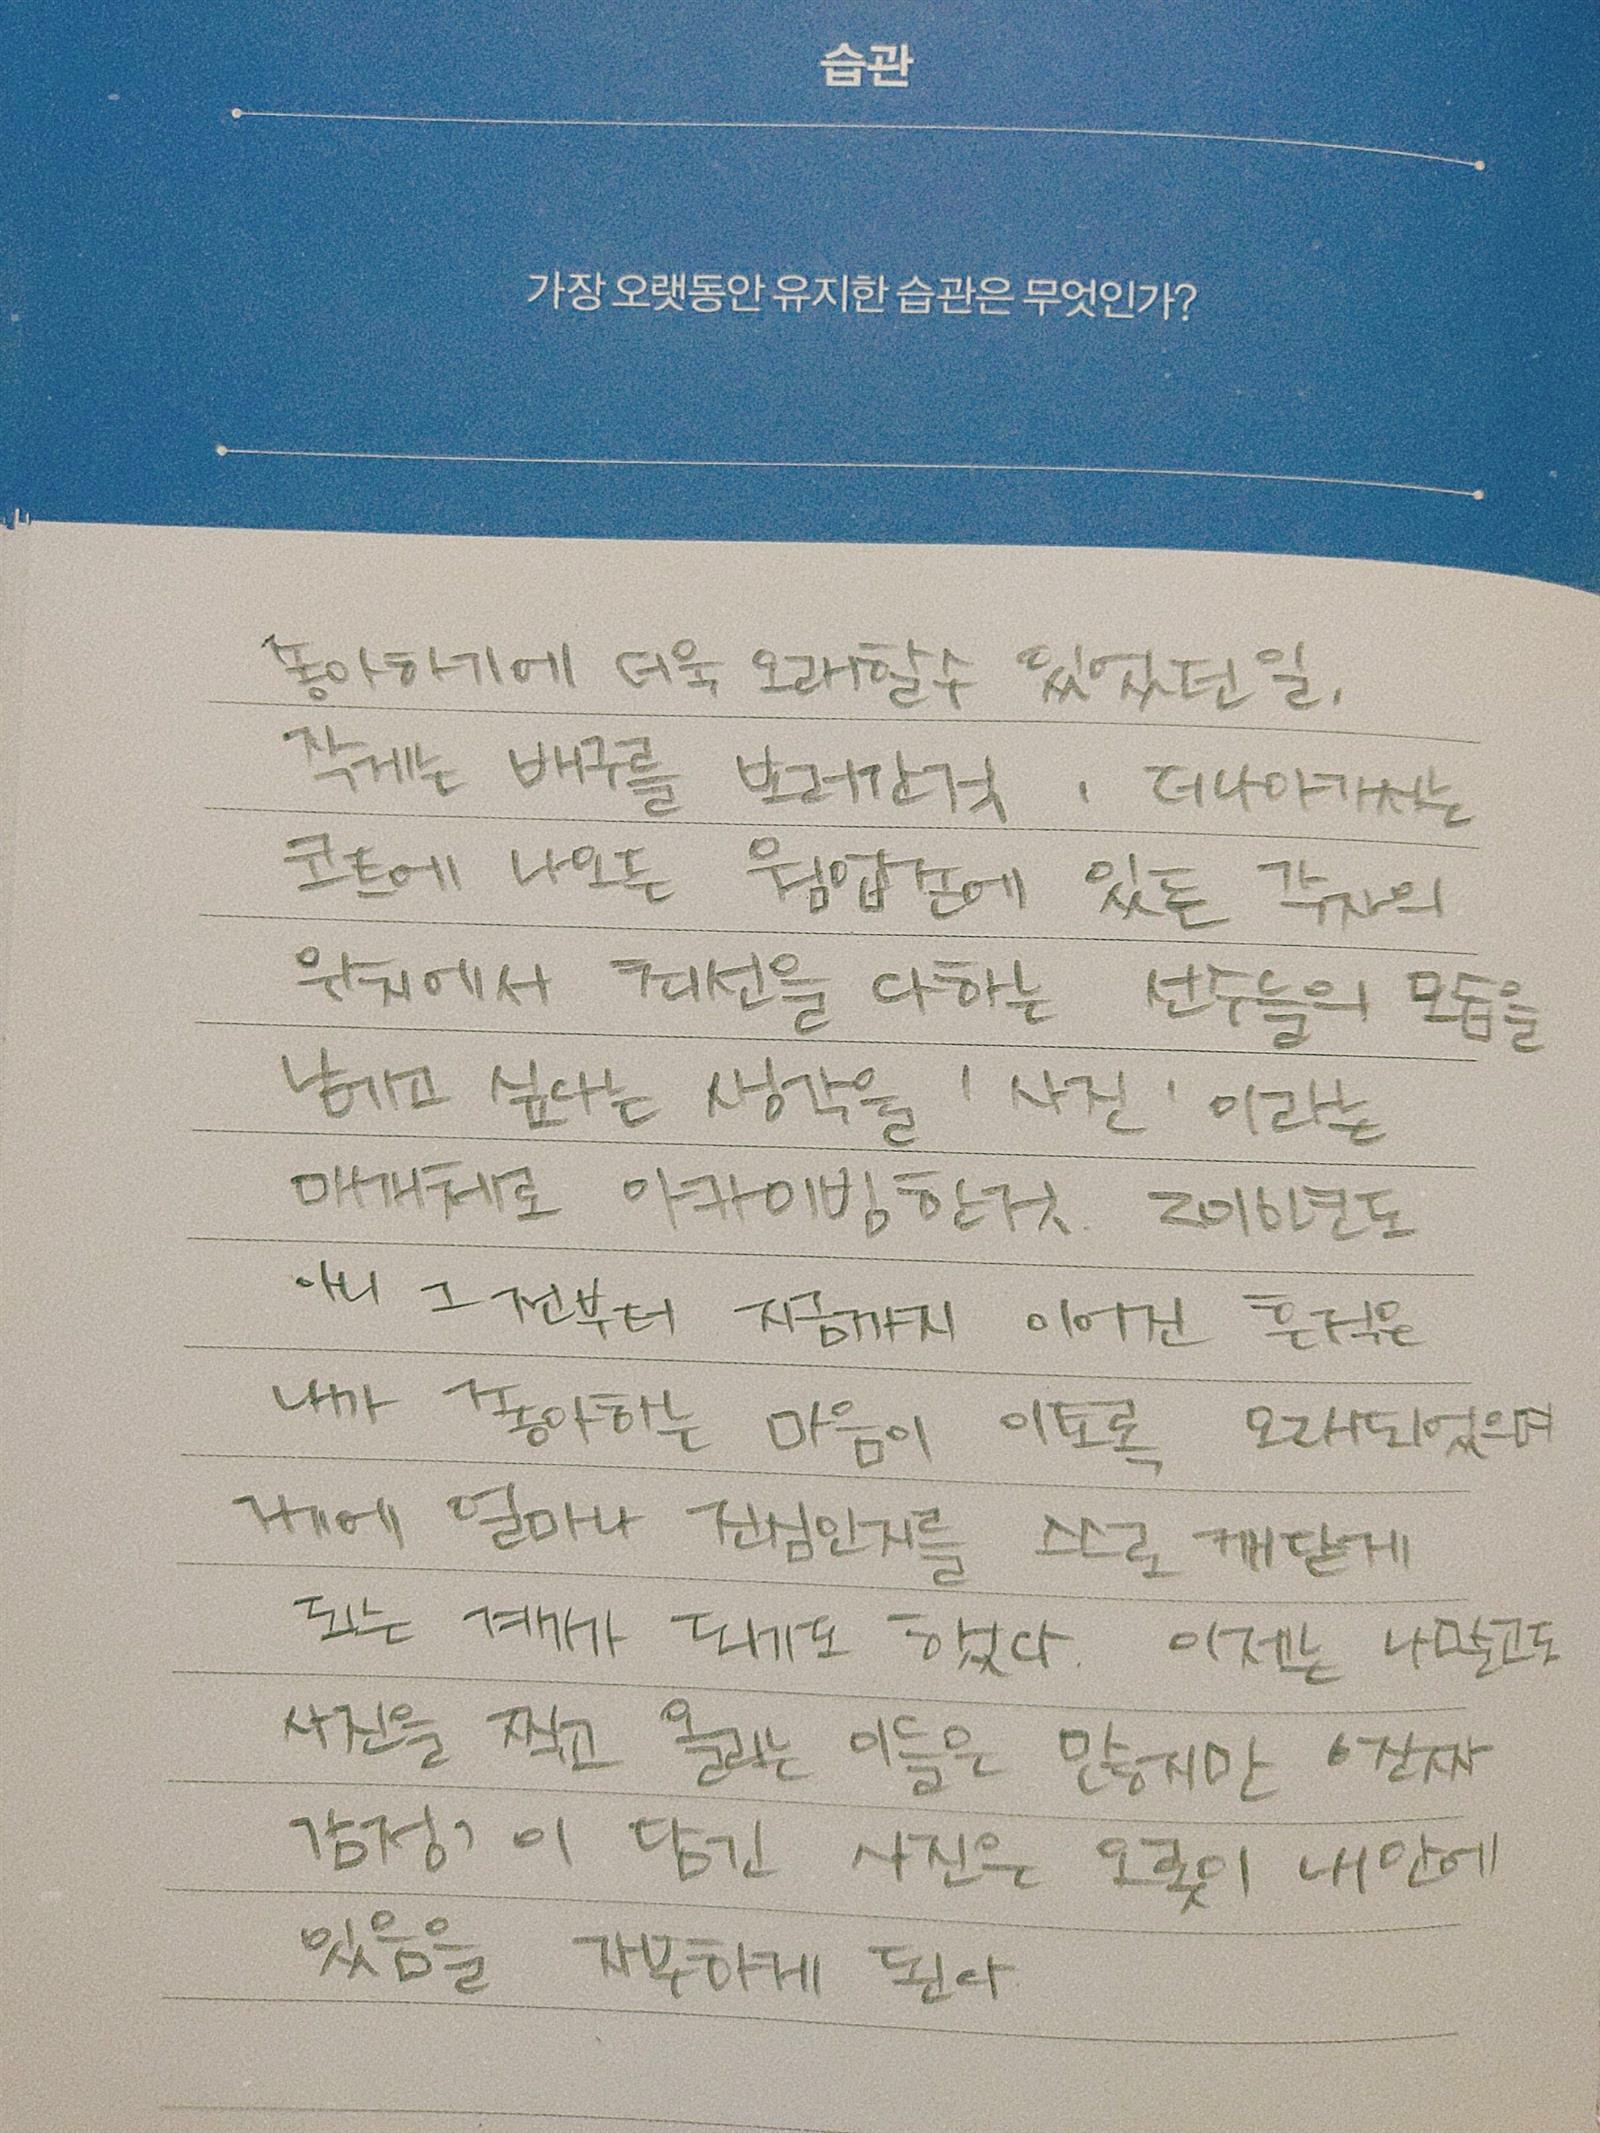 습관
가장 오랫동안 유지한 습관은 무엇인가?
좋아하기에 더욱 오래할수 있었던 일,
작게는 배구를 보러간것, 더나아가서는
코트에 나오든 웜업존에 있든 각자의
위치에서 최선을 다하는 선수들의 모습을
남기고 싶다는 생각을 '사진' 이라는
매개체로 아카이빙한것. 2016년도
아니 그 전부터 지금까지 이어진 흔적은
내가 좋아하는 마음이 이토록 오래되었으며
얼마나 진심인지를 스스로 깨닫게
되는 계기가 되기도 했다. 이제는 나말고도
사진을 찍고 올리는 이들은 많지만 '진짜
감정' 이 담긴 사진은 오롯이 내안에
있음을 자부하게 된다